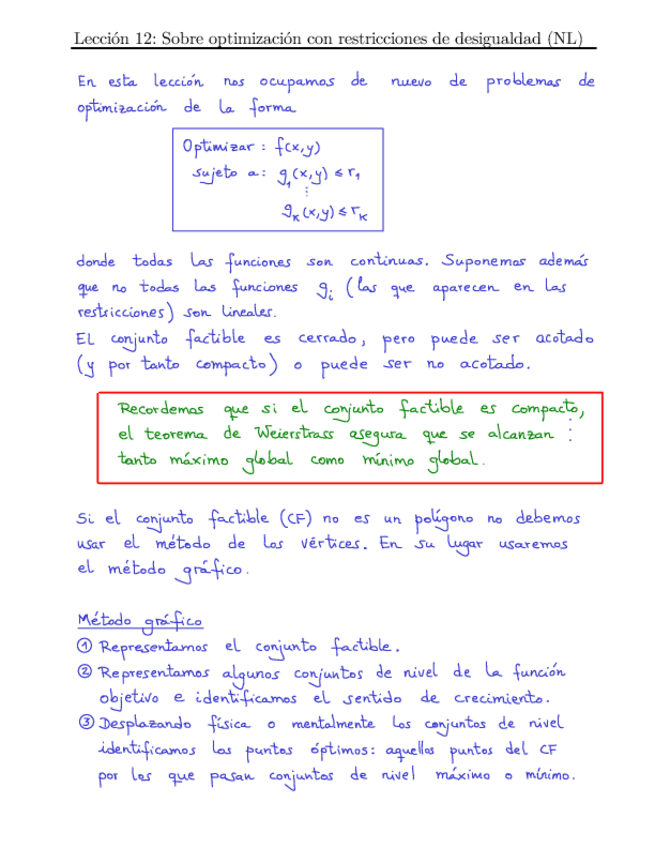 Lección 12: Sobre optimización con restricciones de desigualdad (NL)
En esta lección nos ocupamos de nuevo de problemas de
optimización de la forma
Optimizar : f(x,y)
sujeto a: g₁(x,y) ≤ r₁
⋮
gₖ(x,y) ≤ rₖ
donde todas las funciones son continuas. Suponemos además
que no todas las funciones gᵢ (las que aparecen en las
restricciones) son lineales.
El conjunto factible es cerrado, pero puede ser acotado
(y por tanto compacto) o puede ser no acotado.
Recordemos que si el conjunto factible es compacto,
el teorema de Weierstrass asegura que se alcanzan :
tanto máximo global como mínimo global.
Si el conjunto factible (CF) no es un polígono no debemos
usar el método de los vértices. En su lugar usaremos
el método gráfico.
Método gráfico
① Representamos el conjunto factible.
② Representamos algunos conjuntos de nivel de la función
objetivo e identificamos el sentido de crecimiento.
③ Desplazando física o mentalmente los conjuntos de nivel
identificamos los puntos óptimos: aquellos puntos del CF
por los que pasan conjuntos de nivel máximo o mínimo.